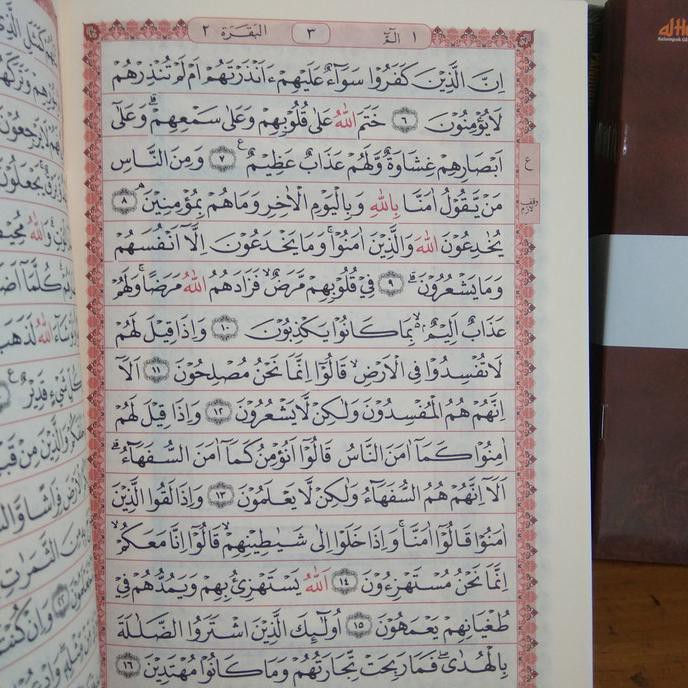 ١ الٓمّٓ
٣
البقرة ٢
اِنَّ الَّذِيْنَ كَفَرُوْا سَوَاۤءٌ عَلَيْهِمْ ءَاَنْذَرْتَهُمْ اَمْ لَمْ تُنْذِرْهُمْ
لَا يُؤْمِنُوْنَ ٦ خَتَمَ اللّٰهُ عَلٰى قُلُوْبِهِمْ وَعَلٰى سَمْعِهِمْ ۗ وَعَلٰٓى
اَبْصَارِهِمْ غِشَاوَةٌ وَّلَهُمْ عَذَابٌ عَظِيْمٌ ࣖ ٧ وَمِنَ النَّاسِ
ع
مَنْ يَّقُوْلُ اٰمَنَّا بِاللّٰهِ وَبِالْيَوْمِ الْاٰخِرِ وَمَا هُمْ بِمُؤْمِنِيْنَ ۘ ٨
وقف لازم
يُخٰدِعُوْنَ اللّٰهَ وَالَّذِيْنَ اٰمَنُوْا ۚ وَمَا يَخْدَعُوْنَ اِلَّآ اَنْفُسَهُمْ
وَمَا يَشْعُرُوْنَ ۗ ٩ فِيْ قُلُوْبِهِمْ مَّرَضٌ ۙ فَزَادَهُمُ اللّٰهُ مَرَضًا ۚ وَلَهُمْ
عَذَابٌ اَلِيْمٌ ۢ ۙ بِمَا كَانُوْا يَكْذِبُوْنَ ١٠ وَاِذَا قِيْلَ لَهُمْ
لَا تُفْسِدُوْا فِى الْاَرْضِ ۙ قَالُوْٓا اِنَّمَا نَحْنُ مُصْلِحُوْنَ ١١ اَلَآ
اِنَّهُمْ هُمُ الْمُفْسِدُوْنَ وَلٰكِنْ لَّا يَشْعُرُوْنَ ١٢ وَاِذَا قِيْلَ لَهُمْ
اٰمِنُوْا كَمَآ اٰمَنَ النَّاسُ قَالُوْٓا اَنُؤْمِنُ كَمَآ اٰمَنَ السُّفَهَاۤءُ ۗ
اَلَآ اِنَّهُمْ هُمُ السُّفَهَاۤءُ وَلٰكِنْ لَّا يَعْلَمُوْنَ ١٣ وَاِذَا لَقُوا الَّذِيْنَ
اٰمَنُوْا قَالُوْٓا اٰمَنَّا ۚ وَاِذَا خَلَوْا اِلٰى شَيٰطِيْنِهِمْ ۙ قَالُوْٓا اِنَّا مَعَكُمْ ۙ
اِنَّمَا نَحْنُ مُسْتَهْزِءُوْنَ ١٤ اَللّٰهُ يَسْتَهْزِئُ بِهِمْ وَيَمُدُّهُمْ فِيْ
طُغْيَانِهِمْ يَعْمَهُوْنَ ١٥ اُولٰۤىِٕكَ الَّذِيْنَ اشْتَرَوُا الضَّلٰلَةَ
بِالْهُدٰىۖ فَمَا رَبِحَتْ تِّجَارَتُهُمْ وَمَا كَانُوْا مُهْتَدِيْنَ ١٦